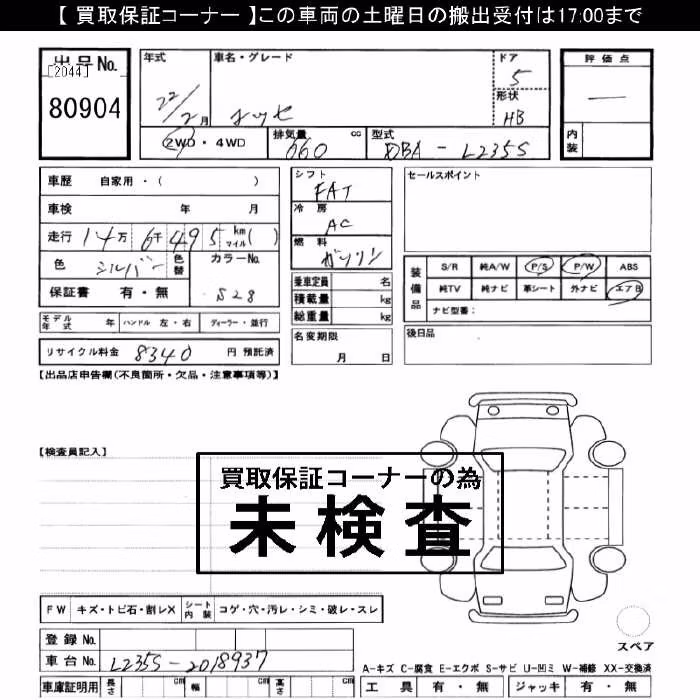 【 買取保証コーナー 】この車両の土曜日の搬出受付は17:00まで
出品No.
[2044]
80904
年式
22/2月
車名・グレード
エッセ
ドア
5
形状
HB
評価点
—
内装
2WD・4WD
排気量
660 cc
型式
DBA - L235S
車歴 自家用・( )
車検 年 月
走行 14万 6千 495 km マイル( )
色 シルバー 色替
カラーNo.
S28
保証書 有・無
モデル年式 年 ハンドル 左・右 ディーラー・並行
リサイクル料金 8340 円 預託済
シフト
FAT
冷房
AC
燃料
ガソリン
乗車定員 名
積載量 kg
総重量 kg
名変期限
月 日
セールスポイント
装備品
S/R 純A/W P/S P/W ABS
純TV 純ナビ 革シート 外ナビ エアB
ナビ型番:
後日品
【出品店申告欄(不良箇所・欠品・注意事項等)】
【検査員記入】
買取保証コーナーの為
未検査
FW キズ・トビ石・割レX シート内装 コゲ・穴・汚レ・シミ・破レ・スレ
登録No.
車台No. L235S-2018937
車庫証明用 長さ cm 幅 cm 高さ cm
スペア
A-キズ C-腐食 E-エクボ S-サビ U-凹ミ W-補修 XX-交換済
工具 有・無 ジャッキ 有・無